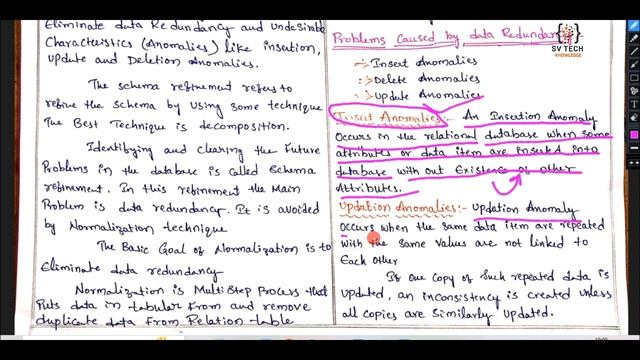 Eliminate data Redundancy and Undesirable
Characteristics (Anomalies) like insertion,
update and Deletion Anomalies.
The schema refinement refers to
refine the schema by using some technique
The Best Technique is decomposition.
Identifying and clearing the Future
Problems in the database is called Schema
refinement. In this refinement the Main
Problem is data redundancy. It is avoided
by Normalization technique
The Basic Goal of Normalization is to
Eliminate data redundancy
Normalization is MultiStep Process that
Puts data in tabular From and remove
duplicate data From Relation table
Problems Caused by data Redundan
SV TECH
KNOWLEDGE
Insert Anomalies
Delete Anomalies
Update Anomalies
Insert Anomalies :- An Insertion Anomaly
Occurs in the relational database when some
attributes or data item are inserted into
database with out Existence of other
Attributes.
Updation Anomalies :- Updation Anomaly
Occurs when the same data item are repeated
with the same values are not linked to
Each other
If one copy of such repeated data is
updated, an inconsistency is created unless
all copies are similarly updated.